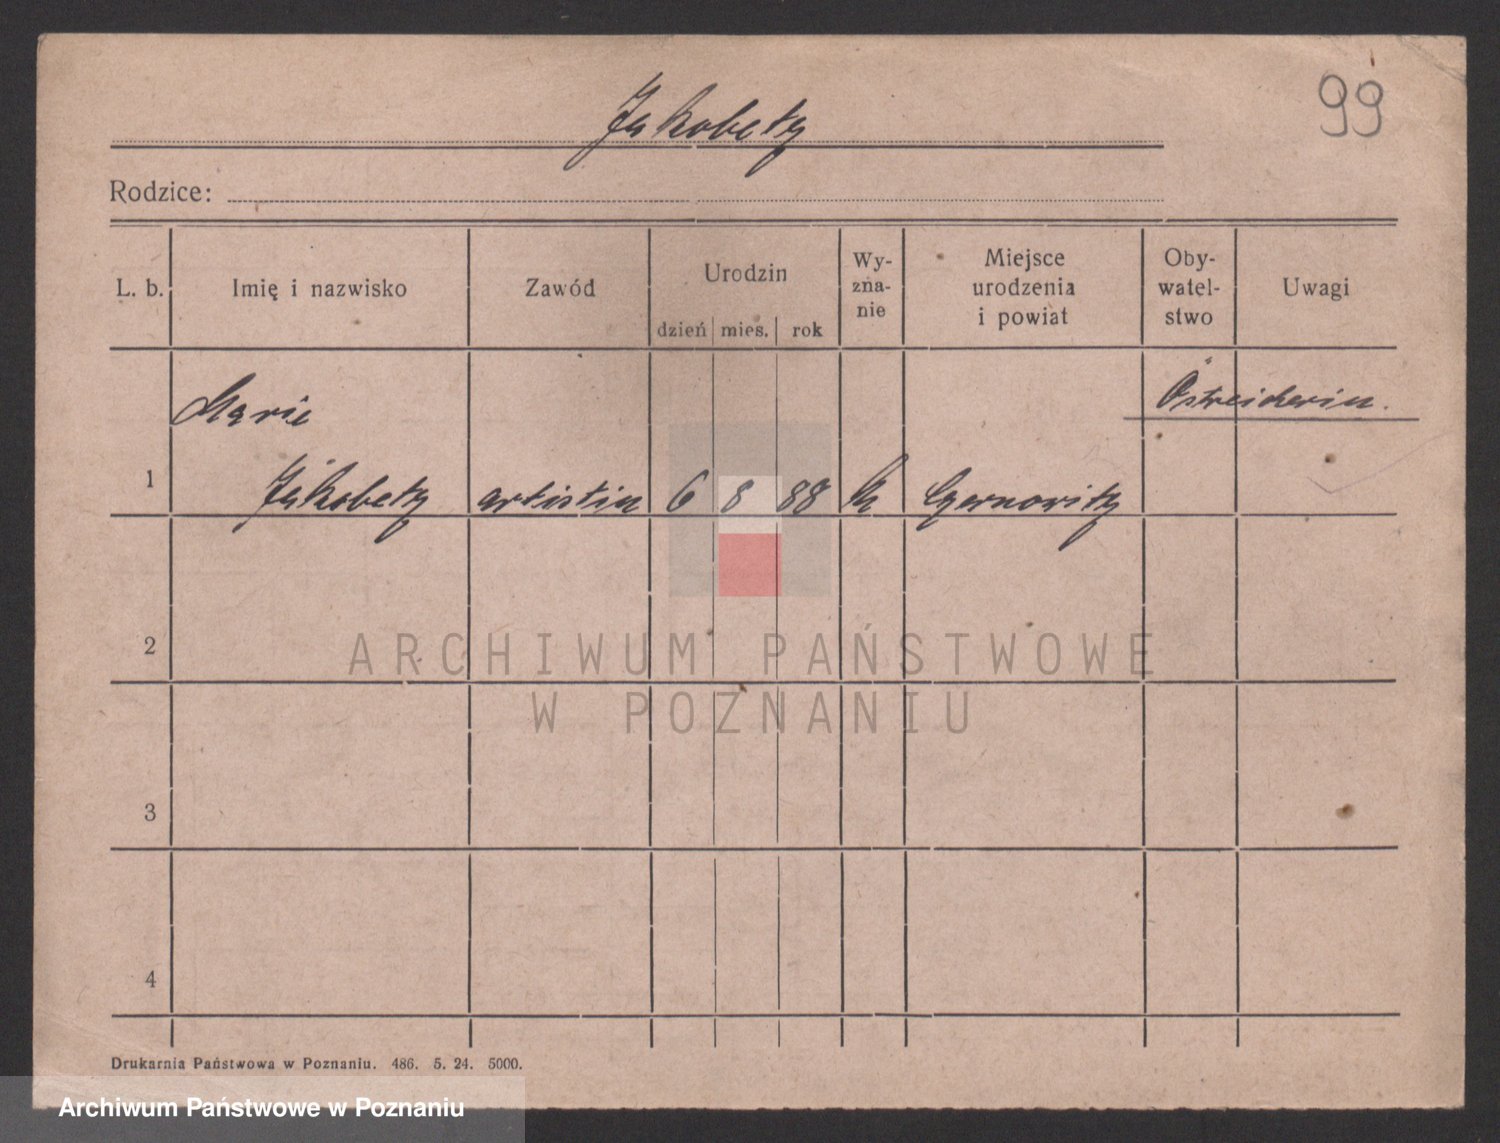 99
Jakobetz
Rodzice:
L. b.
Imię i nazwisko
Zawód
Urodzin
dzień
mies.
rok
Wy-
zna-
nie
Miejsce
urodzenia
i powiat
Oby-
watel-
stwo
Uwagi
Marie
Östreicherin.
1
Jakobetz
artistin
6
8
88
k
Czernowitz
2
ARCHIWUM PAŃSTWOWE
W POZNANIU
3
4
Drukarnia Państwowa w Poznaniu. 486. 5. 24. 5000.
Archiwum Państwowe w Poznaniu